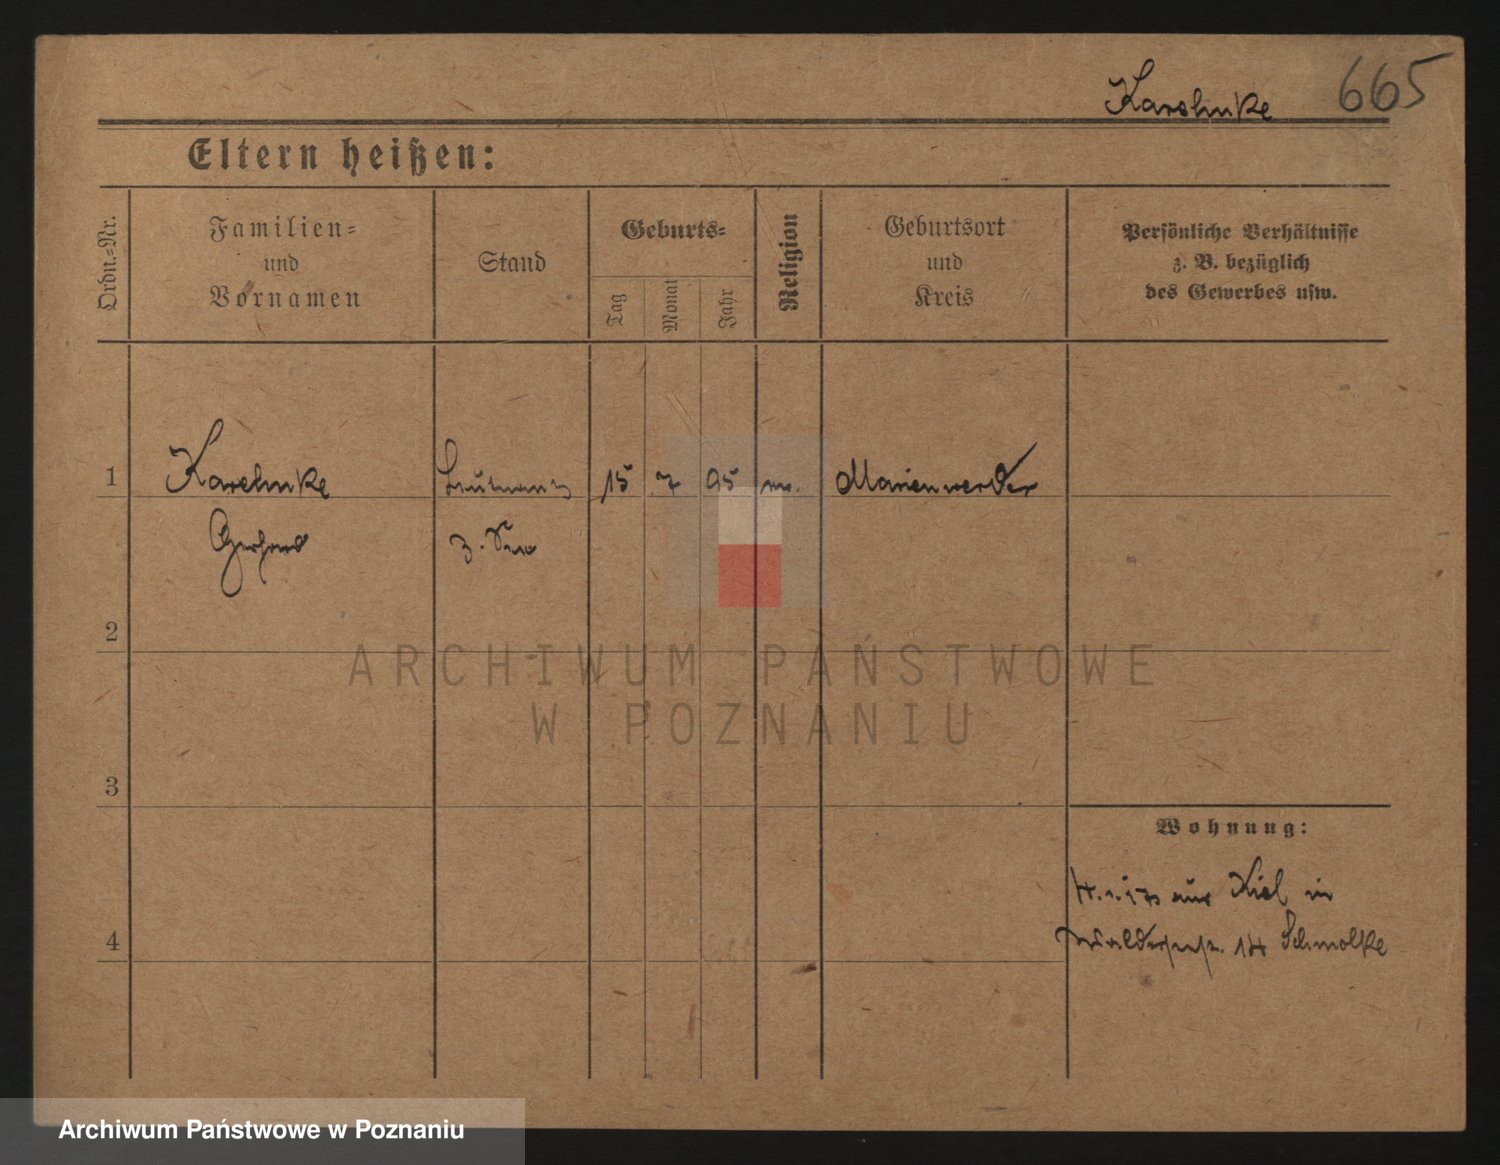 Karehnke 665
Eltern heißen:
Ordn.-Nr.
Familien-
und
Vornamen
Stand
Geburts-
Tag
Monat
Jahr
Religion
Geburtsort
und
Kreis
Persönliche Verhältnisse
z. B. bezüglich
des Gewerbes usw.
1 Karehnke Leutnant 15 7 95 Marienwerder
Gerhard z. See
2
ARCHIWUM PAŃSTWOWE
W POZNANIU
3
Wohnung:
aus Kiel in
14 Schmolke
4
Archiwum Państwowe w Poznaniu